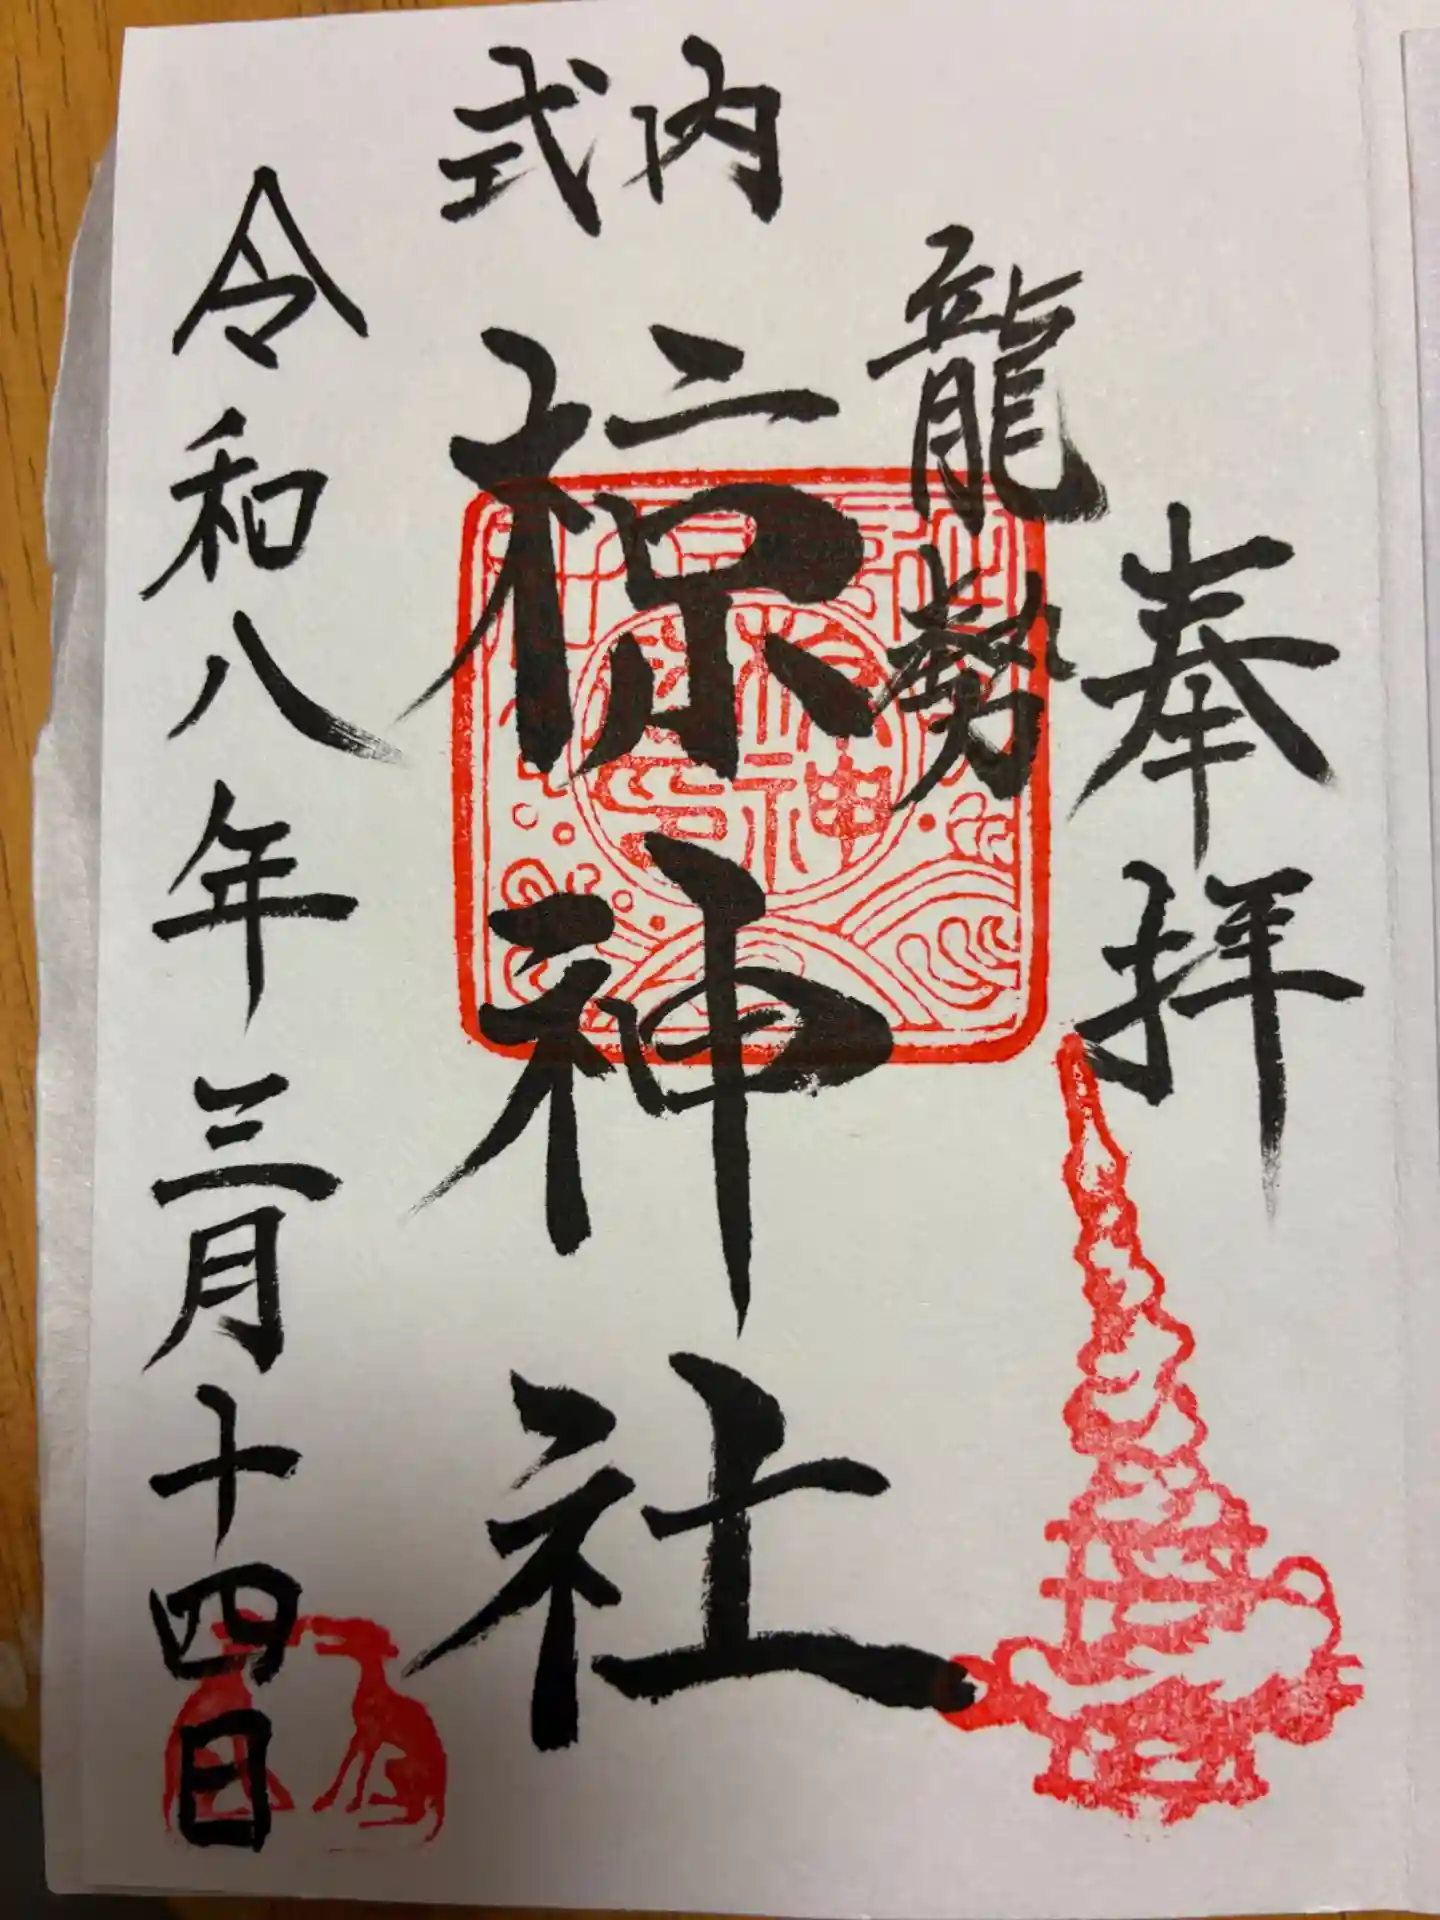 奉拝
龍勢
式内
椋神社
令和八年三月十四日